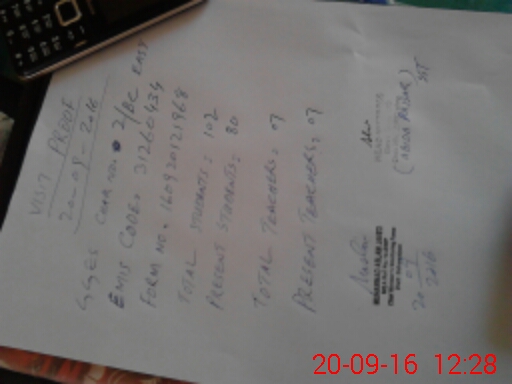 VISIT PROOF
20-09-2016
GGES CHAK NO. 2/BC EAST
EMIS CODE. 31260434
FORM NO. 160920121968
TOTAL STUDENTS: 102
PRESENT STUDENTS: 80
TOTAL TEACHERS: 07
PRESENT TEACHERS: 07
SST
20 09
2016
20-09-16 12:28